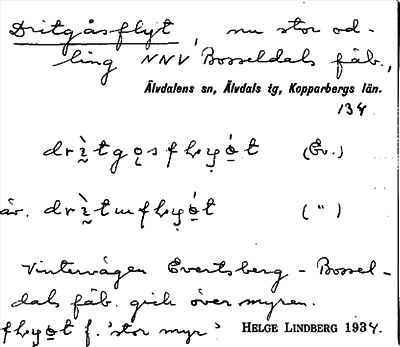 Dritgåsflyt, nu stor od-
ling NNV Bosseldals fäb.,
Älvdalens sn, Älvdals tg, Kopparbergs län.
134
(Ev.)
äv.
(")
Vintervägen Evertsberg - Bossel-
dals fäb. gick över myren.
f. 'stor myr' HELGE LINDBERG 1934.